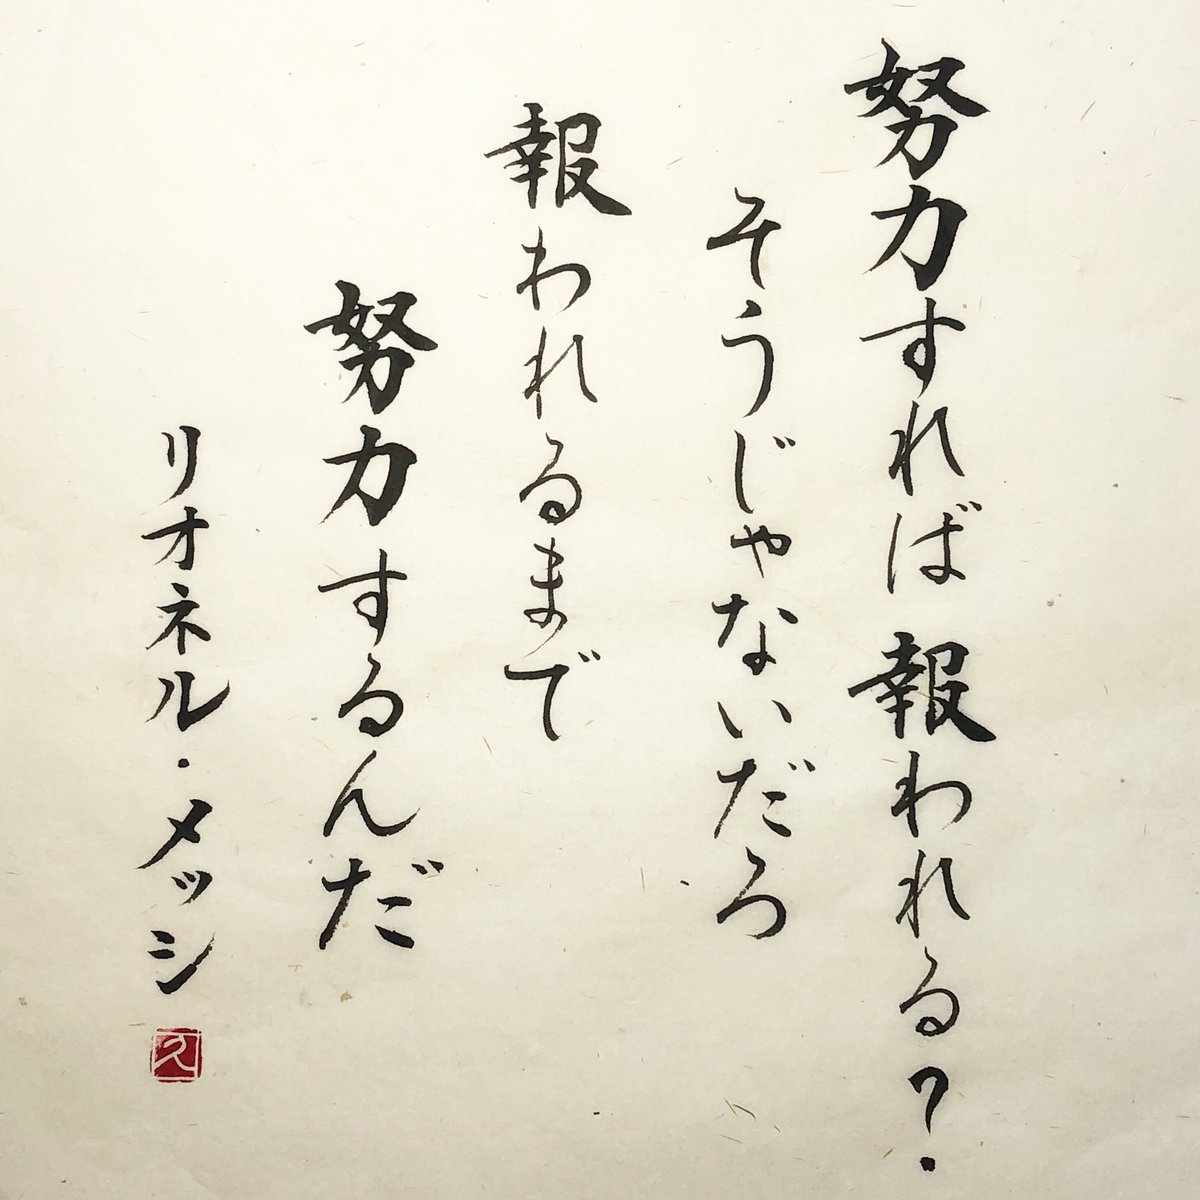 努力すれば 報われる?
そうじゃないだろ
報われるまで
努力するんだ
リオネル・メッシ